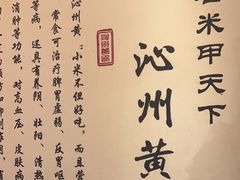 米甲天下
沁州黄
沁州黄"小米不但好吃，而且营
常食可治疗脾胃虚弱、反胃呕
等病，还具有养阴、壮阳、清热
消肿等功能，对高血压、皮肤病